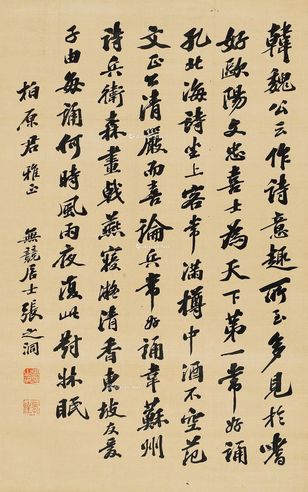 韓魏公云作詩意趣所至多見於嗜
好歐陽文忠喜士為天下第一常好誦
孔北海詩坐上客常滿樽中酒不空范
文正公清嚴而喜論兵常好誦韋蘇州
詩兵衛森畫戟燕寢凝清香東坡友愛
子由每誦何時風雨夜復此對牀眠
柏原君雅正
無競居士張之洞